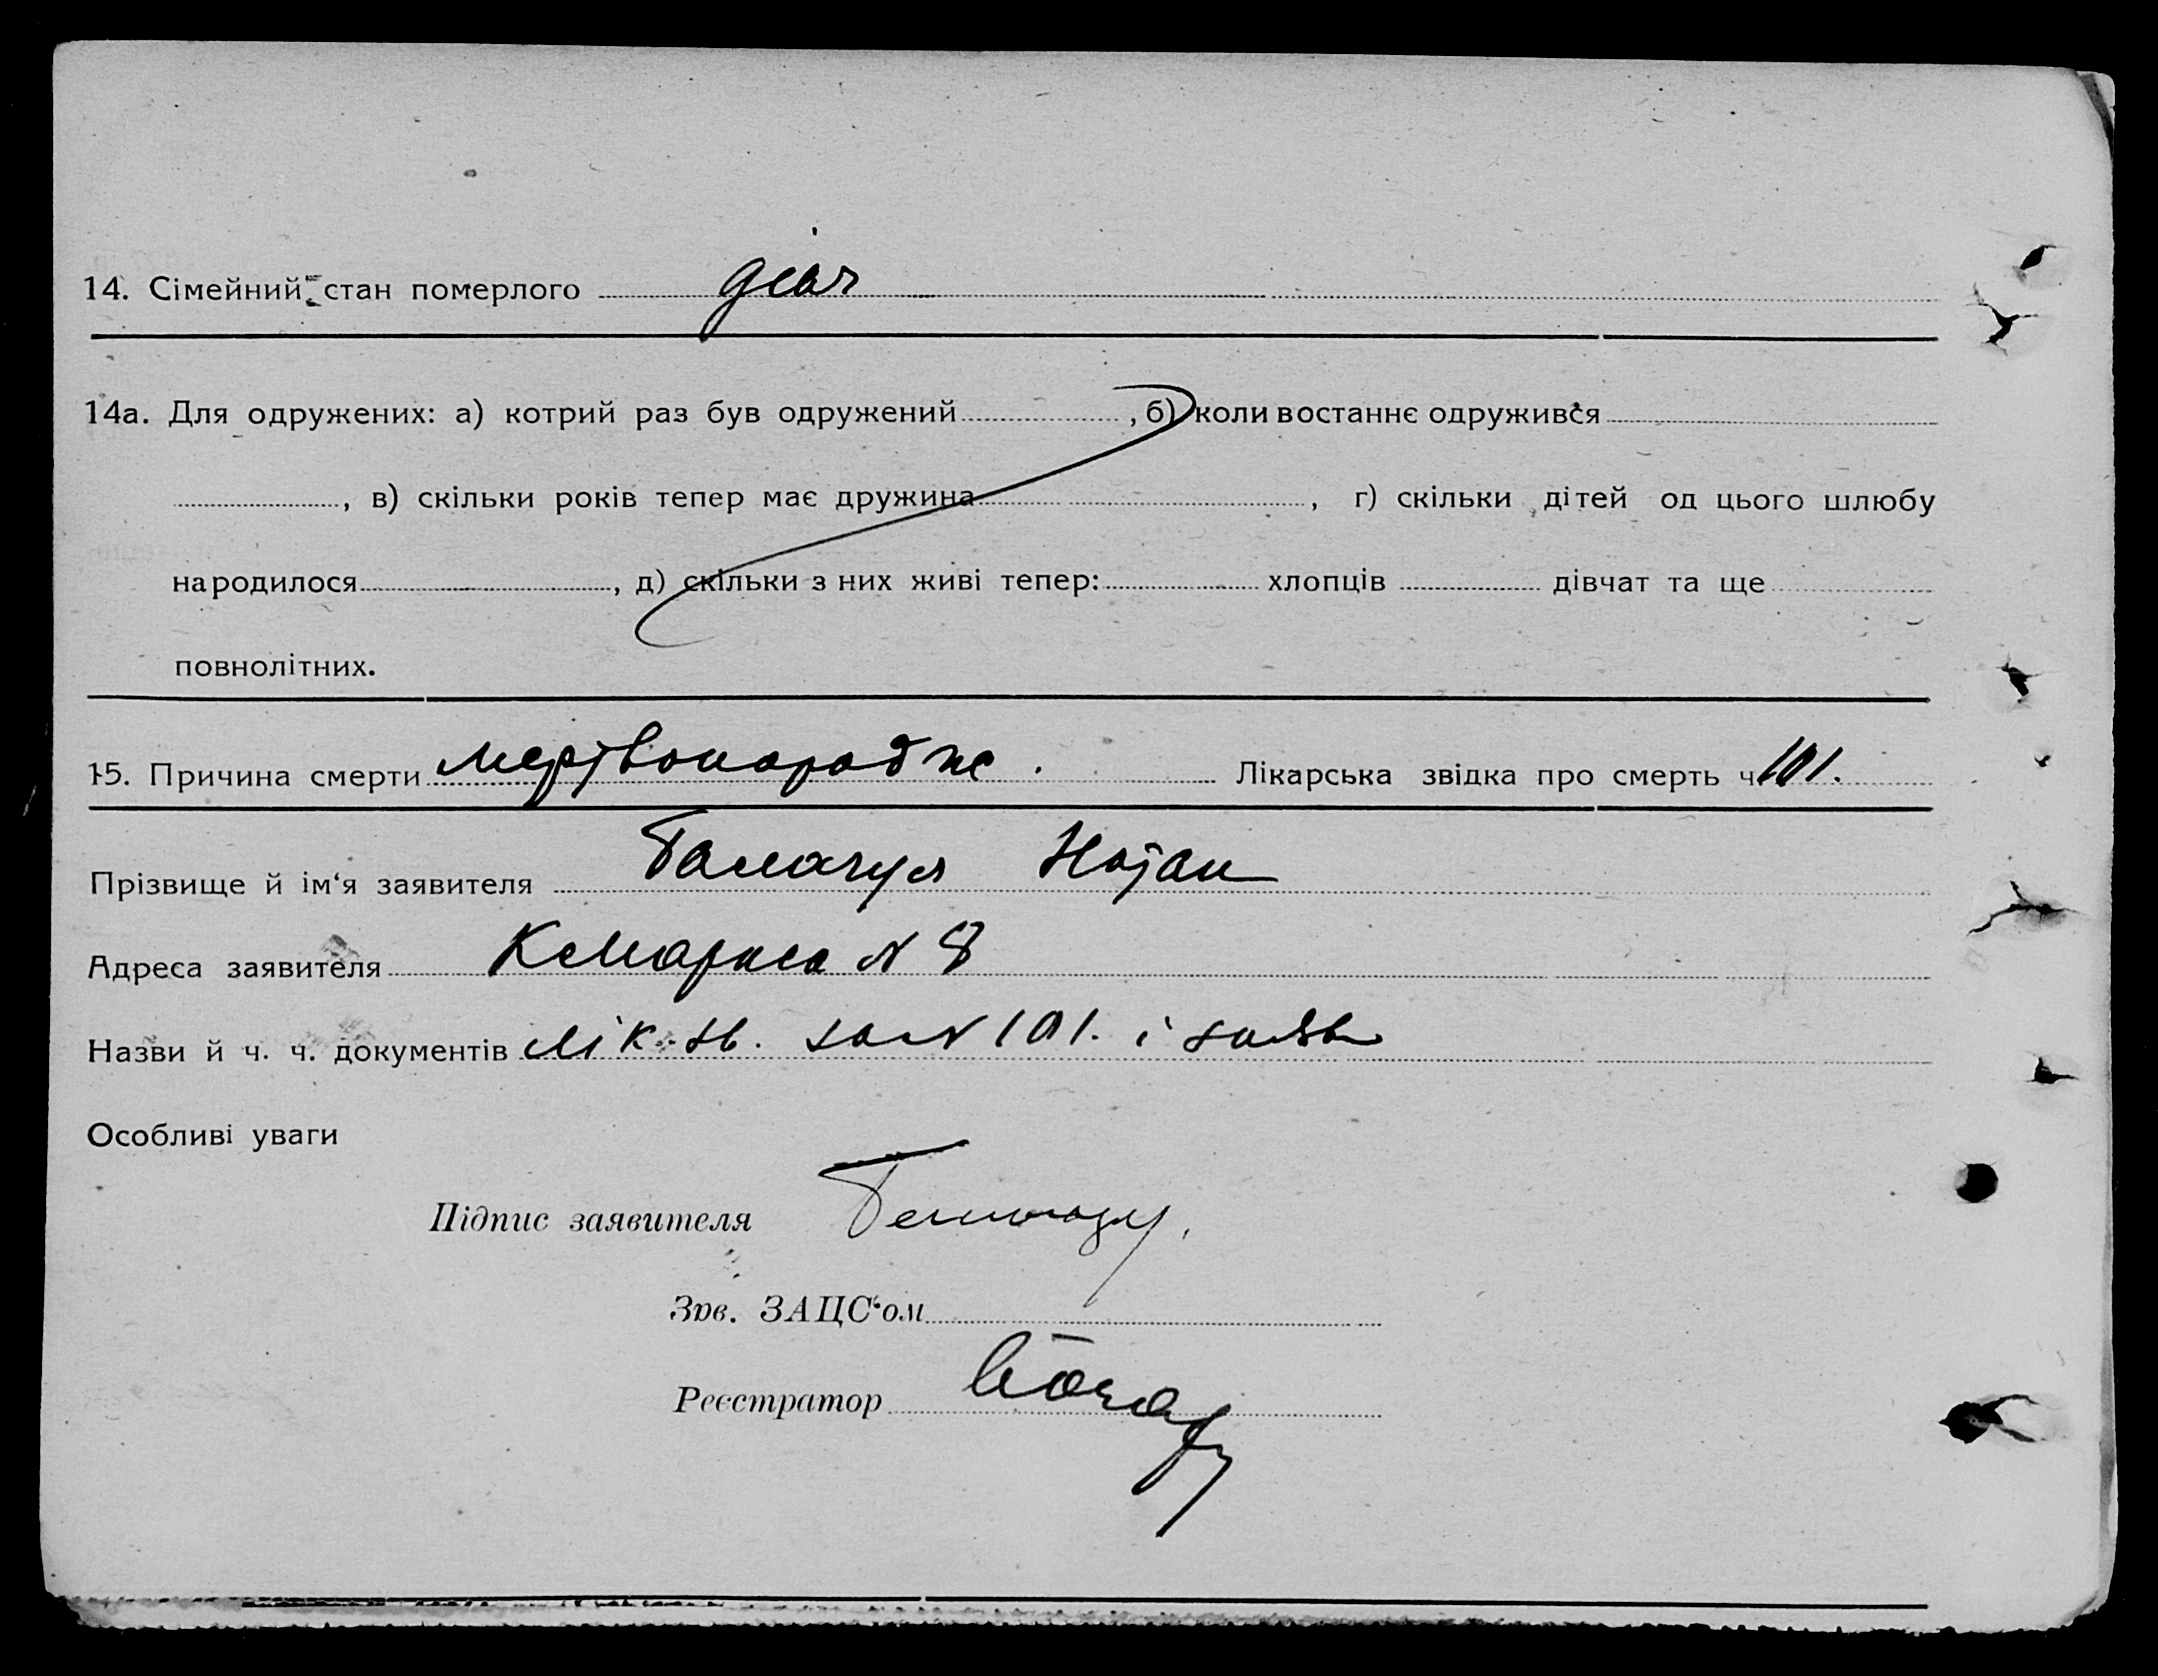 14. Сімейний стан померлого
14а. Для одружених: а) котрий раз був одружений , б) коли востаннє одружився
, в) скільки років тепер має дружина , г) скільки дітей од цього шлюбу
народилося , д) скільки з них живі тепер: хлопців дівчат та ще
повнолітних.
15. Причина смерти мертвонародж. Лікарська звідка про смерть ч. 101.
Прізвище й ім‘я заявителя Натан
Адреса заявителя К Маркса № 8
Назви й ч. ч. документів Лік. зв. за № 101. і заяв
Особливі уваги
Підпис заявителя
Зав. ЗАЦС‘ом
Реєстратор